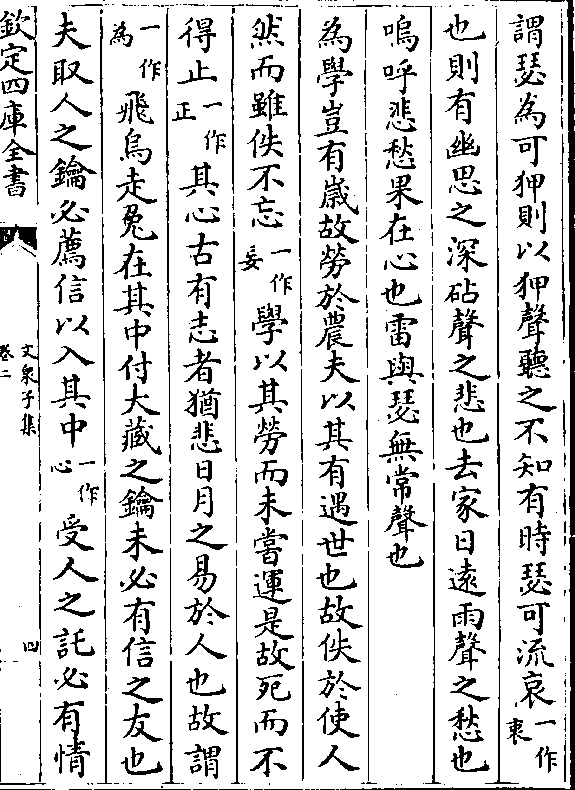 謂瑟為可狎則以狎聲聽之不知有時瑟可流哀一作衷
也則有幽思之深砧聲之悲也去家日遠雨聲之愁也
嗚呼悲愁果在心也雷與瑟無常聲也
為學豈有歲故勞於農夫以其有遇世也故佚於使人
然而雖佚不忘一作妄學以其勞而未嘗運是故死而不
得止一作正其心古有志者猶悲日月之易於人也故謂
一作為飛烏走兔在其中付大藏之鑰未必有信之友也
夫取人之鑰必薦信以入其中一作心受人之託必有情
欽定四庫全書
文泉子集
卷二
四